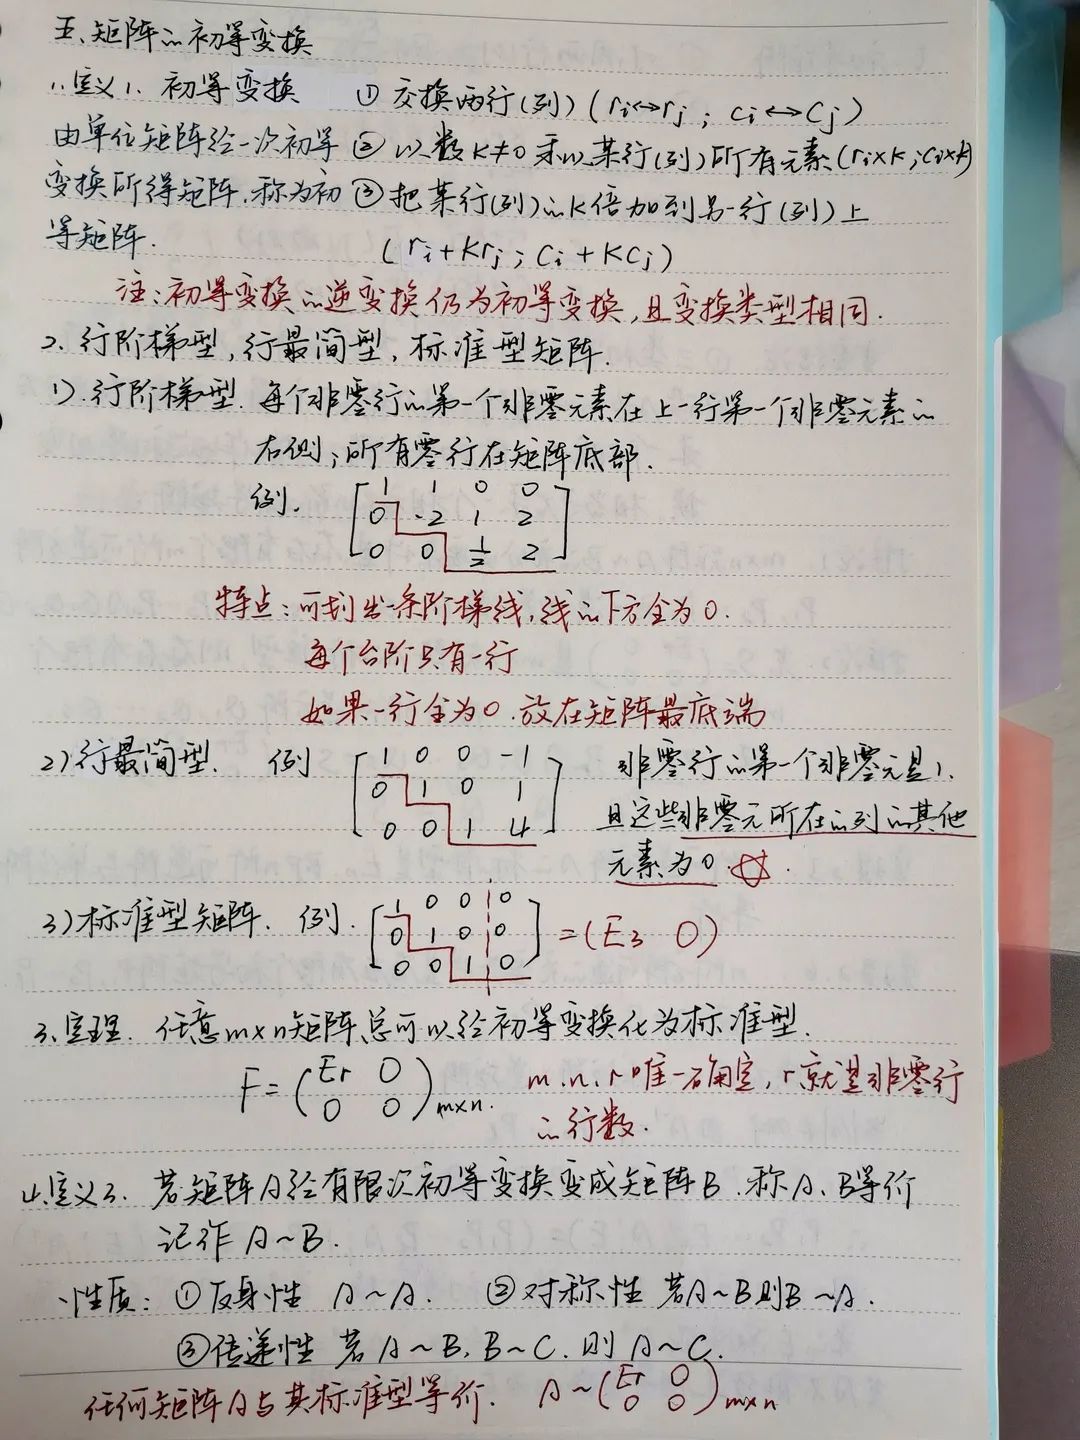 五、矩阵的初等变换
1.定义1、初等变换 ① 交换两行(列) (ri↔rj ; ci↔cj)
由单位矩阵经一次初等 ② 以数K≠0乘以某行(列)所有元素(ri×k ; ci×k)
变换所得矩阵.称为初 ③ 把某行(列)的K倍加到另一行(列)上
等矩阵. (ri+krj ; ci+kcj)
注:初等变换的逆变换仍为初等变换,且变换类型相同.
2. 行阶梯型,行最简型,标准型矩阵.
1).行阶梯型. 每个非零行的第一个非零元素在上一行第一个非零元素的
右侧;所有零行在矩阵底部.
例. [ 1 1 0 0
0 -2 1 2
0 0 1/2 2 ]
特点:可划出一条阶梯线,线的下方全为0.
每个台阶只有一行
如果一行全为0.放在矩阵最底端
2)行最简型. 例 [ 1 0 0 -1 非零行的第一个非零元是1.
0 1 0 1 且这些非零元所在的列的其他
0 0 1 4 ] 元素为0.
3)标准型矩阵. 例. [ 1 0 0 0
0 1 0 0 = (E3 0)
0 0 1 0 ]
3.定理. 任意m×n矩阵,总可以经初等变换化为标准型.
F = (Er 0 m.n.r唯一确定,r就是非零行
0 0)m×n. 的行数.
4.定义2. 若矩阵A经有限次初等变换变成矩阵B.称A、B等价
记作 A~B.
性质: ①反身性 A~A. ②对称性 若A~B则B~A.
③传递性 若A~B, B~C. 则 A~C.
任何矩阵A与其标准型等价. A~(Er 0
0 0)m×n